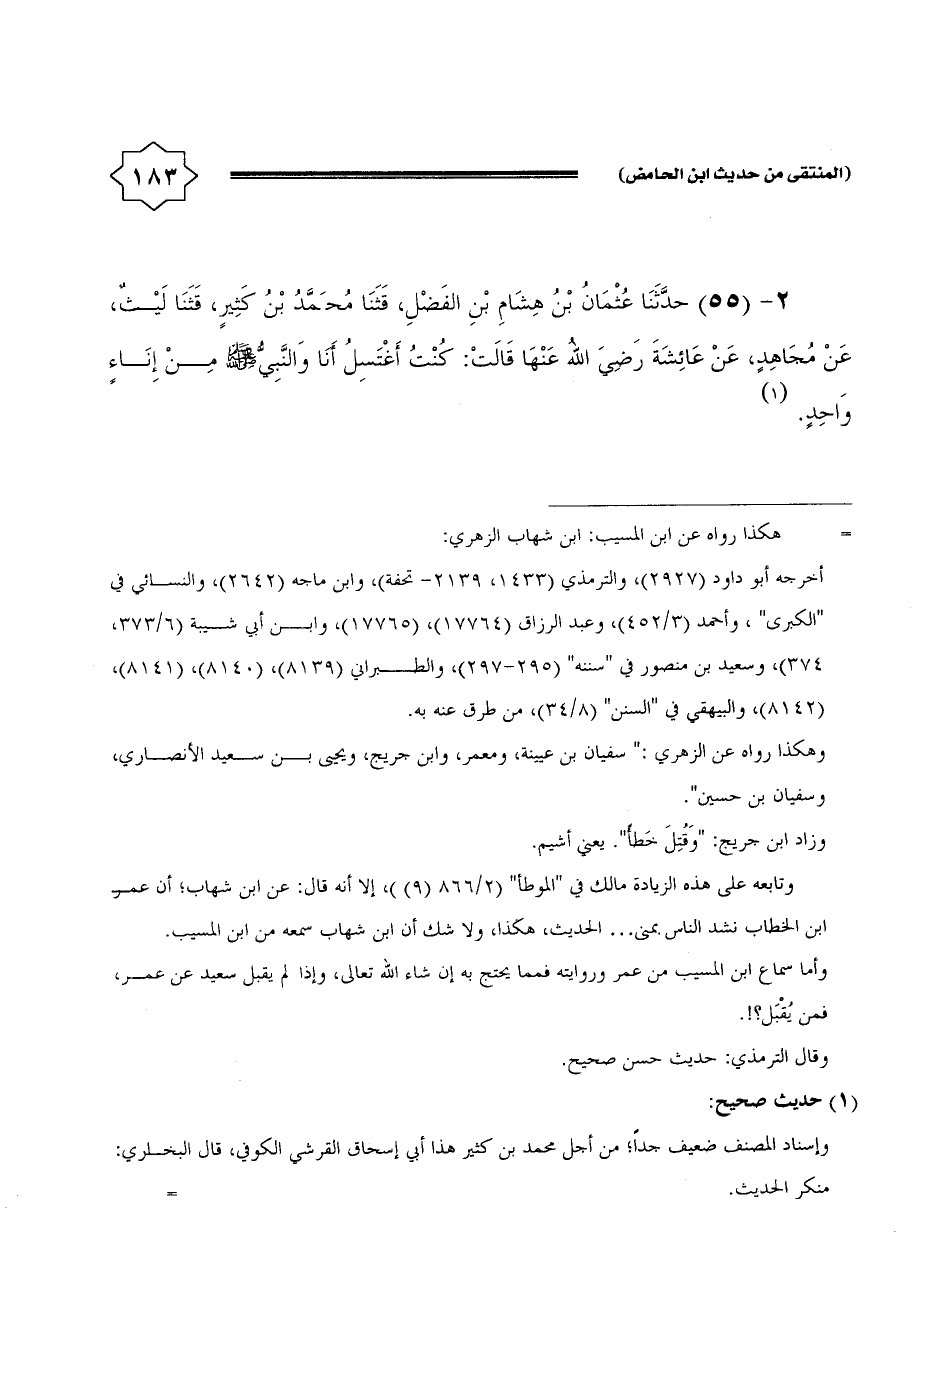 (المنتقى من حديث ابن الحامض) ١٨٣
٢- (٥٥) حدَّثَنَا عُثْمَانُ بْنُ هِشَامِ بْنِ الفَضْلِ، قَثَنَا مُحَمَّدُ بْنُ كَثِيرٍ، قَثَنَا لَيْــثٌ،
عَنْ مُجَاهِدٍ، عَنْ عَائِشَةَ رَضِيَ اللهُ عَنْهَا قَالَتْ: كُنْتُ أَغْتَسِلُ أَنَا وَالنَّبِيُّ ﷺ مِــنْ إِنَـاءٍ
وَاحِدٍ. (١)
= هكذا رواه عن ابن المسيب: ابن شهاب الزهري:
أخرجه أبو داود (٢٩٢٧)، والترمذي (١٤٣٣، ٢١٣٩- تحفة)، وابن ماجه (٢٦٤٢)، والنســائي في
"الكبرى" ، وأحمد (٤٥٢/٣)، وعبد الرزاق (١٧٧٦٤)، (١٧٧٦٥)، وابــن أبي شــيبة (٣٧٣/٦،
٣٧٤)، وسعيد بن منصور في "سننه" (٢٩٥-٢٩٧)، والطــبراني (٨١٣٩)، (٨١٤٠)، (٨١٤١)،
(٨١٤٢)، والبيهقي في "السنن" (٣٤/٨)، من طرق عنه به.
وهكذا رواه عن الزهري :" سفيان بن عيينة، ومعمر، وابن جريج، ويحيى بــن ســعيد الأنصــاري،
وسفيان بن حسين".
وزاد ابن جريج: "وَقُتِلَ خَطأً". يعني أشيم.
وتابعه على هذه الزيادة مالك في "الموطأ" (٨٦٦/٢ (٩) )، إلا أنه قال: عن ابن شهاب؛ أن عمــر
ابن الخطاب نشد الناس بمنى... الحديث، هكذا، ولا شك أن ابن شهاب سمعه من ابن المسيب.
وأما سماع ابن المسيب من عمر وروايته فمما يحتج به إن شاء الله تعالى، وإذا لم يقبل سعيد عن عمــر،
فمن يُقْبَل؟!.
وقال الترمذي: حديث حسن صحيح.
(١) حديث صحيح:
وإسناد المصنف ضعيف جداً؛ من أجل محمد بن كثير هذا أبي إسحاق القرشي الكوفي، قال البخاري:
منكر الحديث. =